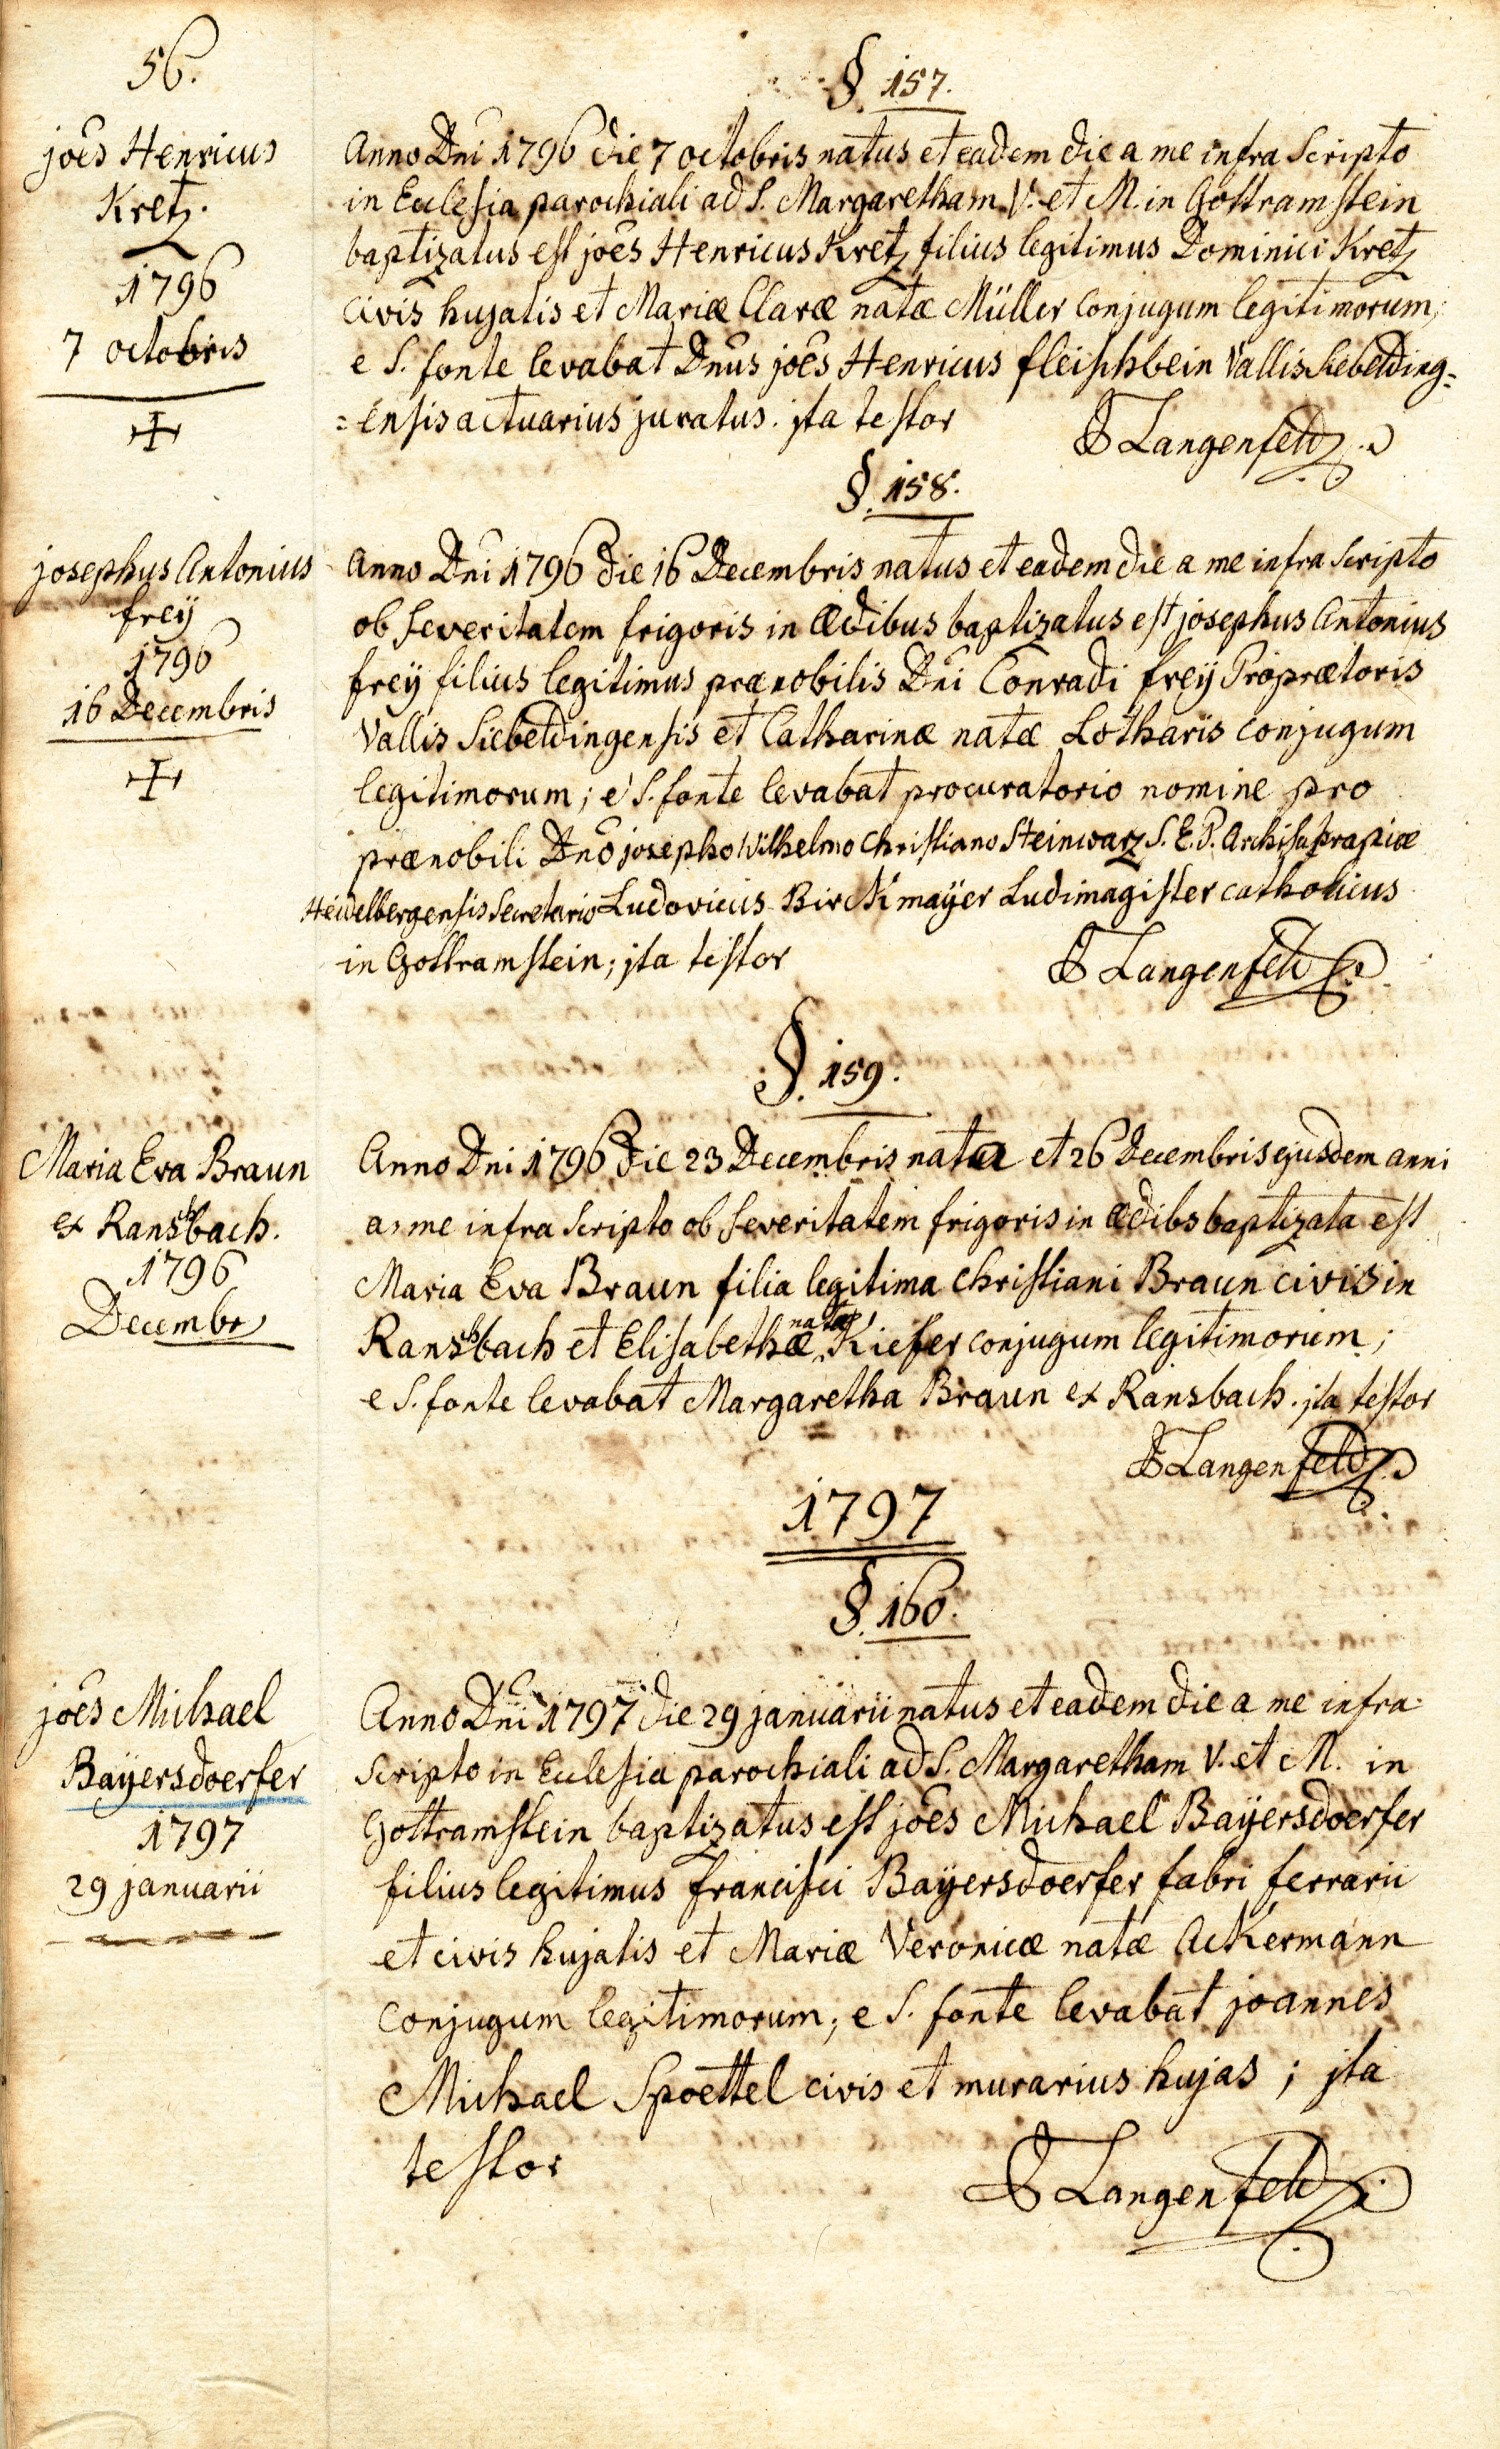 56.
§. 157.
joēs Henricus
Kretz.
1796
7 octobris
Anno Dni 1796 die 7 octobris natus et eadem die a me infra scripto
in Ecclesia parochiali ad S. Margaretham V. et M. in Gottramstein
baptizatus est joēs Henricus Kretz filius legitimus Dominici Kretz
civis hujatis et Mariæ Claræ natæ Müller conjugum legitimorum;
e S. fonte levabat Dnus joēs Henricus fleischbein Vallis Siebelding=
=ensis actuarius juratus. jta testor
Langenfeld
§. 158.
josephus Antonius
freÿ
1796
16 Decembris
Anno Dni 1796 die 16 Decembris natus et eadem die a me infra scripto
ob severitatem frigoris in ædibus baptizatus est josephus Antonius
freÿ filius legitimus prænobilis Dni Conradi freÿ Proprætoris
Vallis Siebeldingensis et Catharinæ natæ Lotharis conjugum
legitimorum; e S. fonte levabat procuratorio nomine pro
prænobili Dno josepho Wilhelmo Christiano Steinwarz S. E. P.
Heidelbergensis Secretario Ludovicus Birckmaÿer Ludimagister catholicus
in Gottramstein; jta testor
Langenfeld
§. 159.
Maria Eva Braun
ex Ranschbach.
1796
Decembr
Anno Dni 1796 die 23 Decembris nata et 26 Decembris ejusdem anni
a me infra scripto ob severitatem frigoris in ædibs baptizata est
Maria Eva Braun filia legitima Christiani Braun civis in
Ranschbach et Elisabethæ natæ Kiefer conjugum legitimorum;
e S. fonte levabat Margaretha Braun ex Ransbach. jta testor
Langenfeld
1797
§. 160.
joēs Michael
Baÿersdoerfer
1797
29 januarii
Anno Dni 1797 die 29 januarii natus et eadem die a me infra-
scripto in Ecclesia parochiali ad S. Margaretham V. et M. in
Gottramstein baptizatus est joēs Michael Baÿersdoerfer
filius legitimus francisci Baÿersdoerfer fabri ferrarii
et civis hujatis et Mariæ Veronicæ natæ Ackermann
conjugum legitimorum; e S. fonte levabat joannes
Michael Spoettel civis et murarius hujas; jta
testor
Langenfeld